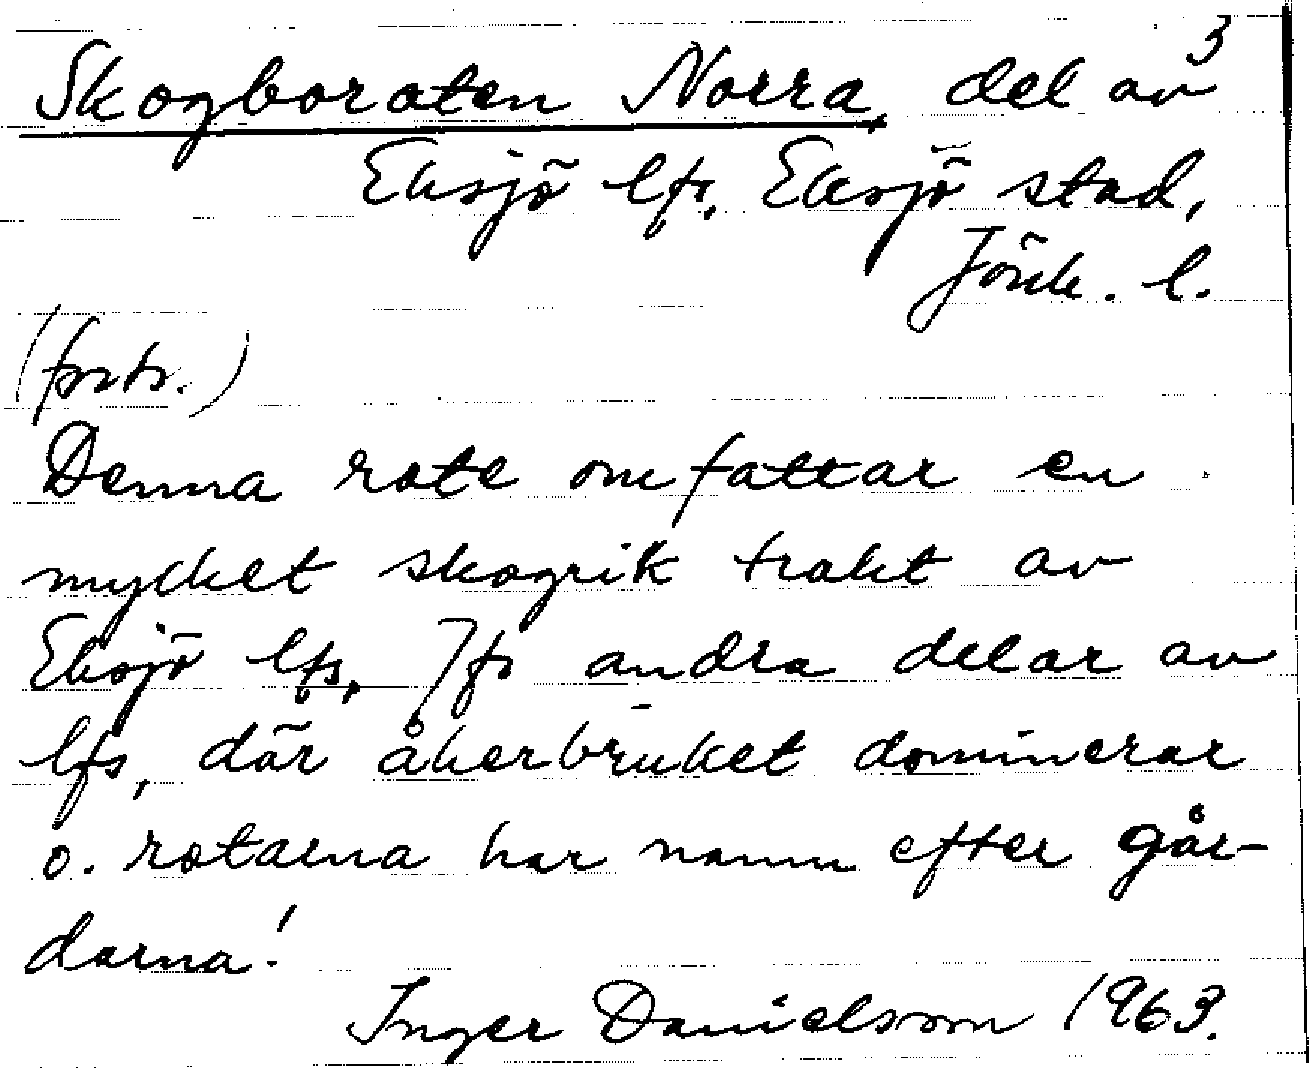 3
Skogboroten Norra, del av
Eksjö lfs, Eksjö stad,
Jönk. l.
(forts.)
Denna rote omfattar en
mycket skogrik trakt av
Eksjö lfs, Jfr andra delar av
lfs, där åkerbruket dominerar
o. rotarna har namn efter går-
darna!
Inger Danielsson 1963.